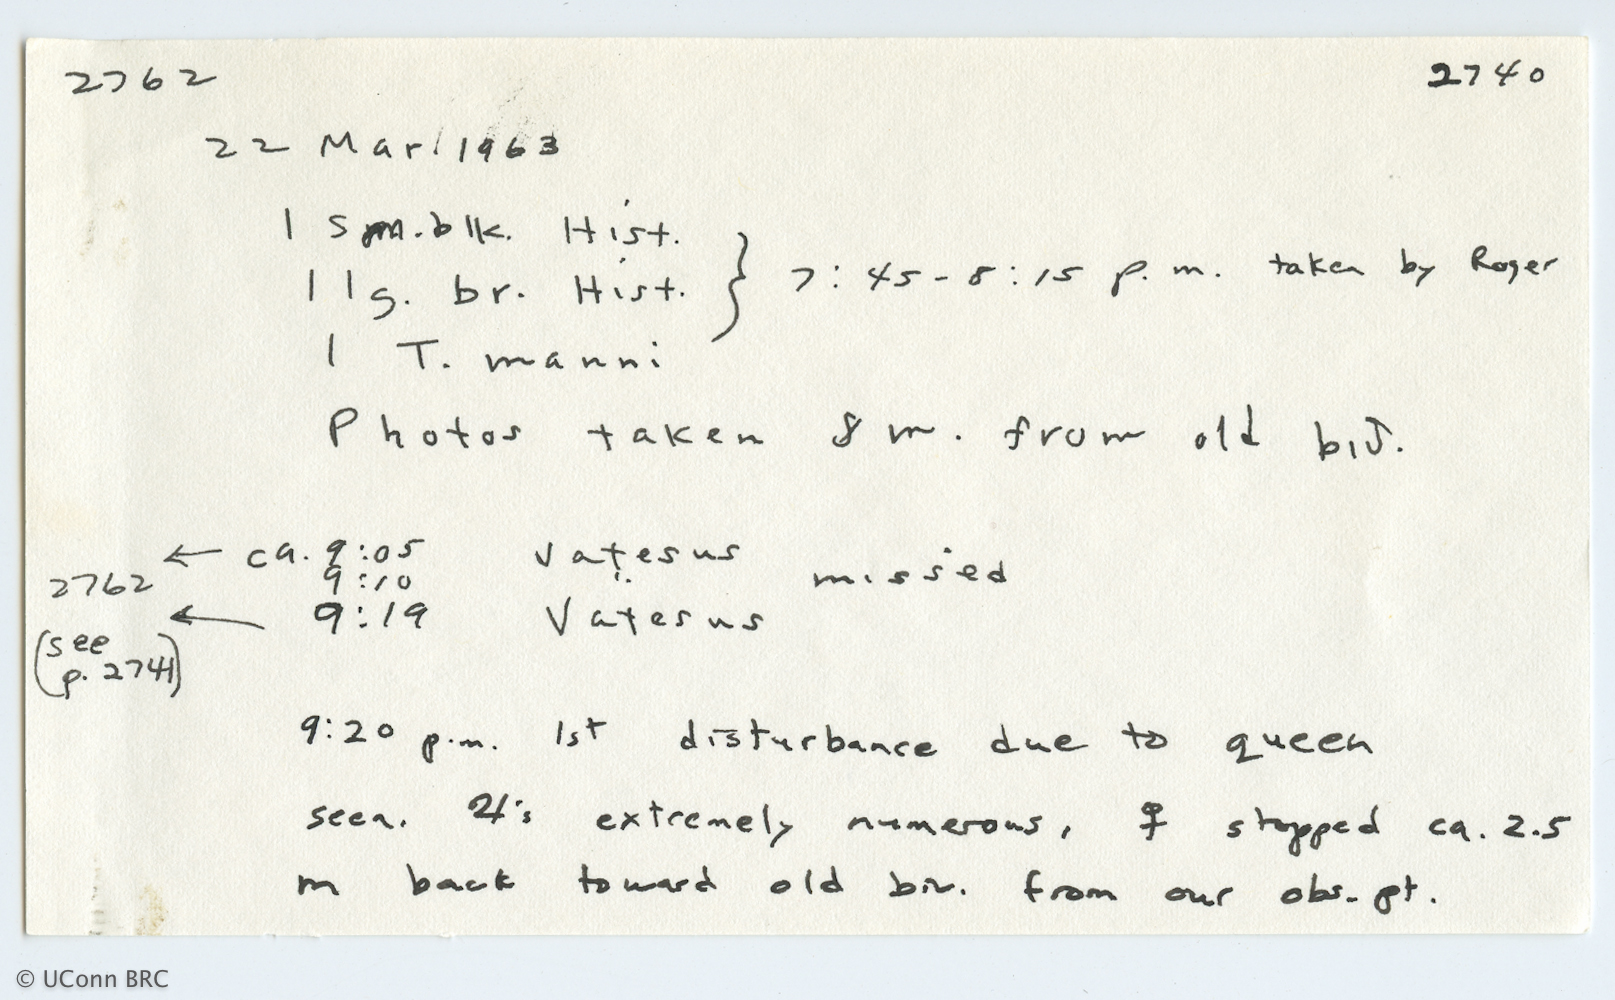 2762 2740
22 Mar 1963
1 sm. blk. Hist.
1 lg. br. Hist. } 7:45-8:15 p.m. taken by Roger
1 T. manni
Photos taken 8 m. from old biv.
← ca. 9:05 Vatesus
2762 9:10 " missed
← 9:19 Vatesus
(see
p. 2741)
9:20 p.m. 1st disturbance due to queen
seen. ♃'s extremely numerous, ♀ stopped ca. 2.5
m back toward old biv. from our obs. pt.
© UConn BRC